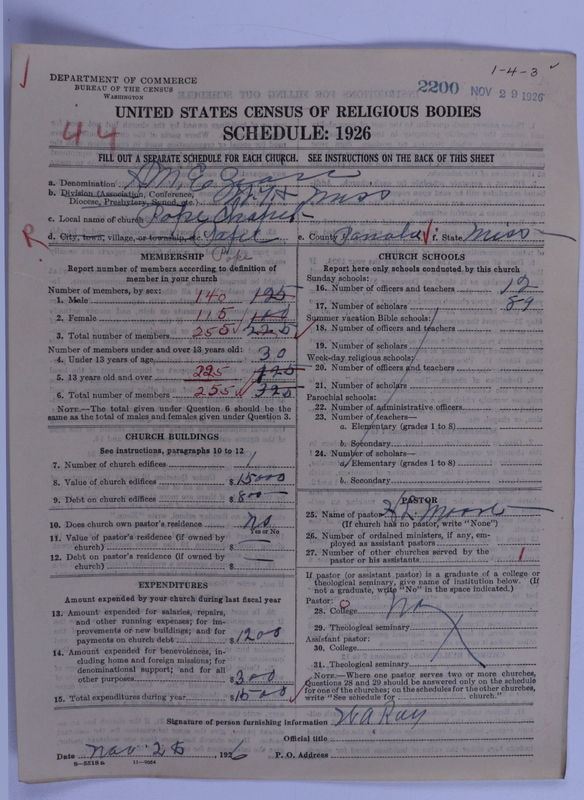 1-4-3
DEPARTMENT OF COMMERCE
BUREAU OF THE CENSUS
WASHINGTON
2200 NOV 29 1926
UNITED STATES CENSUS OF RELIGIOUS BODIES
44
SCHEDULE: 1926
FILL OUT A SEPARATE SCHEDULE FOR EACH CHURCH. SEE INSTRUCTIONS ON THE BACK OF THIS SHEET
a. Denomination A M E
b. Division (Association, Conference, Diocese, Presbytery, Synod, etc.) Miss
c. Local name of church Pope
R d. City, town, village, or township, etc. Pope e. County Panola f. State Miss
MEMBERSHIP
Report number of members according to definition of
member in your church
Number of members, by sex:
1. Male 140 125
2. Female 115 100
3. Total number of members 255 225
Number of members under and over 13 years old:
4. Under 13 years of age 30
5. 13 years old and over 225
6. Total number of members 255 325
NOTE.—The total given under Question 6 should be the
same as the total of males and females given under Question 3.
CHURCH BUILDINGS
See instructions, paragraphs 10 to 12
7. Number of church edifices 1
8. Value of church edifices $ 15000
9. Debt on church edifices $ 800
10. Does church own pastor's residence No
Yes or No
11. Value of pastor's residence (if owned by
church) $
12. Debt on pastor's residence (if owned by
church) $
EXPENDITURES
Amount expended by your church during last fiscal year
13. Amount expended for salaries, repairs,
and other running expenses; for im-
provements or new buildings; and for
payments on church debt $ 1200
14. Amount expended for benevolences, in-
cluding home and foreign missions; for
denominational support; and for all
other purposes $ 300
15. Total expenditures during year $ 1500
CHURCH SCHOOLS
Report here only schools conducted by this church
Sunday schools:
16. Number of officers and teachers 12
17. Number of scholars 89
Summer vacation Bible schools:
18. Number of officers and teachers
19. Number of scholars
Week-day religious schools:
20. Number of officers and teachers
21. Number of scholars
Parochial schools:
22. Number of administrative officers
23. Number of teachers—
a. Elementary (grades 1 to 8)
b. Secondary
24. Number of scholars—
a. Elementary (grades 1 to 8)
b. Secondary
PASTOR
25. Name of pastor Moore
(If church has no pastor, write "None")
26. Number of ordained ministers, if any, em-
ployed as assistant pastors
27. Number of other churches served by the
pastor or his assistants 1
If pastor (or assistant pastor) is a graduate of a college or
theological seminary, give name of institution below. (If
not a graduate, write "No" in the space indicated.)
Pastor:
28. College No
29. Theological seminary
Assistant pastor:
30. College
31. Theological seminary
NOTE.—Where one pastor serves two or more churches,
Questions 28 and 29 should be answered only on the schedule
for one of the churches; on the schedules for the other churches,
write "See schedule for church."
Signature of person furnishing information W A Ray
Official title
Date Nov. 25, 1926 P. O. Address
8-5518 a 11-9064